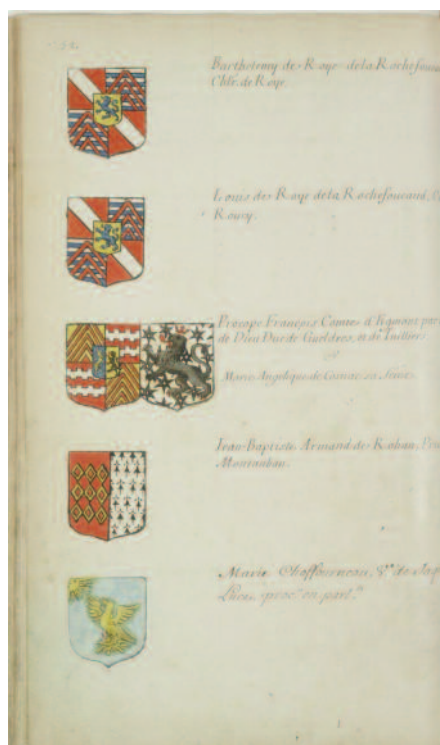 Barthelemy de Roye de la Rochefouca
Chlr. de Roye.
Louis de Roye de la Rochefoucaud,
Roucy.
Procope François Comte d'Egmont par
de Dieu Duc de Gueldres, et de Juilliers
et
Marie Angelique de Cosnac sa femme
Jean Baptiste Armand de Rohan, Pri
Montauban.
Marie Choffourneau, Vve de Jaq
proc. en parl.